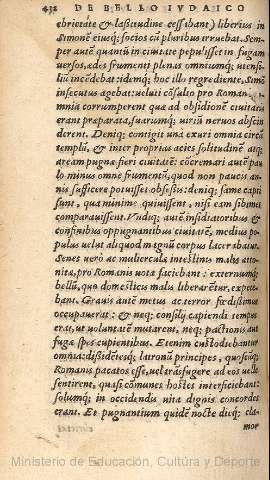 432 DE BELLO IVDAICO
ebrietate & lassitudine cessibant) liberius in
Simonē eiusq́; socios cū pluribus irruebat. Sem-
per autē quantū in ciuitate pepulisset in fugam
uersos, ædes frumenti plenas omniumq́; utensi-
liū incēdebat: idemq́; hoc illo regrediente, Simō
insecutus agebat: ueluti cōsulto pro Roman
mnia corrumperent quæ ad obsidionē ciuitati
erant præparata, suarumq́; uiriū neruos abscin
derent. Deniq; contigit una exuri omnia circa
templū, & inter proprias acies solitudinē atq;
aream pugnæ fieri ciuitatē: cōcremari autē pau
lo minus omne frumentū, quod non paucis an-
nis sufficere potuisset obsessis: deniq; fame capti
sunt, qua minimè quiuissent, nisi eam sibimet
comparauissent. Vndiq; autē insidiatoribus &
confinibus oppugnantibus ciuitatē, medius po
pulus uelut aliquod magnū corpus lacerabatur.
Senes uerò ac mulierculæ intestinis malis atto-
nitæ, pro Romanis uota faciebant: externumq́;
bellū, quo domesticis malis liberarētur, expecta
bant. Grauis autē metus ac terror fœdissimus
occupauerat: & neq; consilij capiendi tempus
erat, ut uoluntatē mutarent, neq; pactionis aut
fugæ spes cupientibus. Etenim custodiebantur
omnia: dissidētesq́; latronū principes, quoscūq;
Romanis pacatos esse, uel trāsfugere ad eos uelle
sentirent, quasi cōmunes hostes interficiebant:
solumq́; in occidendis uita dignis concordes
erant. Et pugnantium quidē nocte dieq́; cla-
mor
Ministerio de Educación, Cultura y Deporte